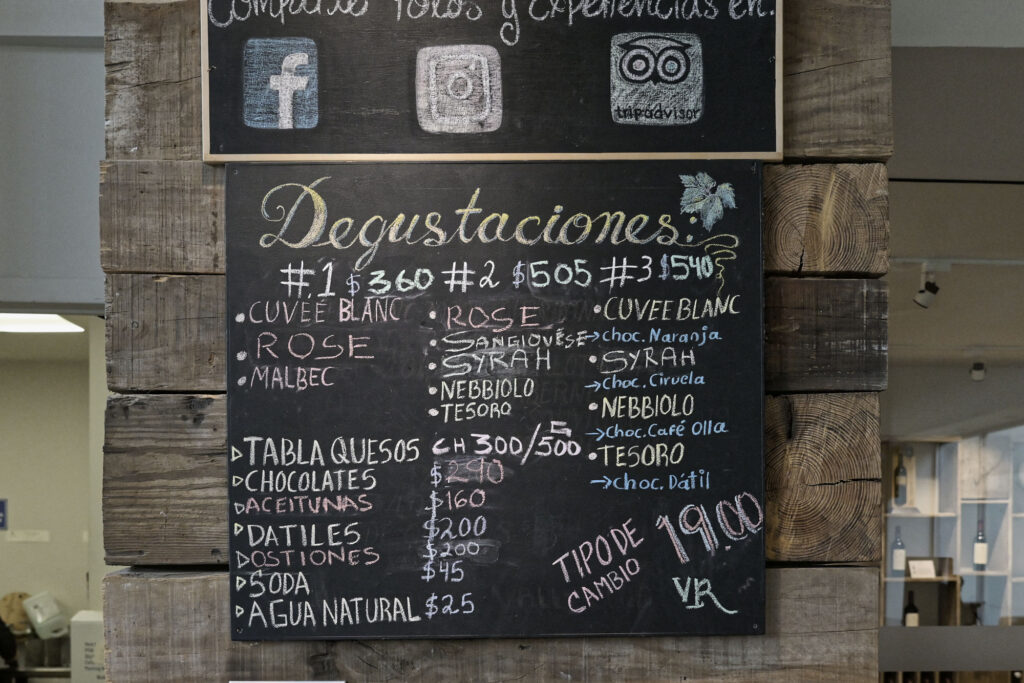 Comparte fotos y experiencias en:
f
tripadvisor
Degustaciones:
#1 $360 #2 $505 #3 $540
• CUVÉE BLANC
• ROSE
• MALBEC
• ROSE
• SANGIOVÉSE
• SYRAH
• NEBBIOLO
• TESORO
• CUVEE BLANC
→ choc. Naranja
• SYRAH
→ Choc. Ciruela
• NEBBIOLO
→ Choc. Café Olla
• TESORO
→ choc. Dátil
▷ TABLA QUESOS CH 300/500
▷ CHOCOLATES $290
▷ ACEITUNAS $160
▷ DATILES $200
▷ OSTIONES $200
▷ SODA $45
▷ AGUA NATURAL $25
TIPO DE CAMBIO 19.00
VR